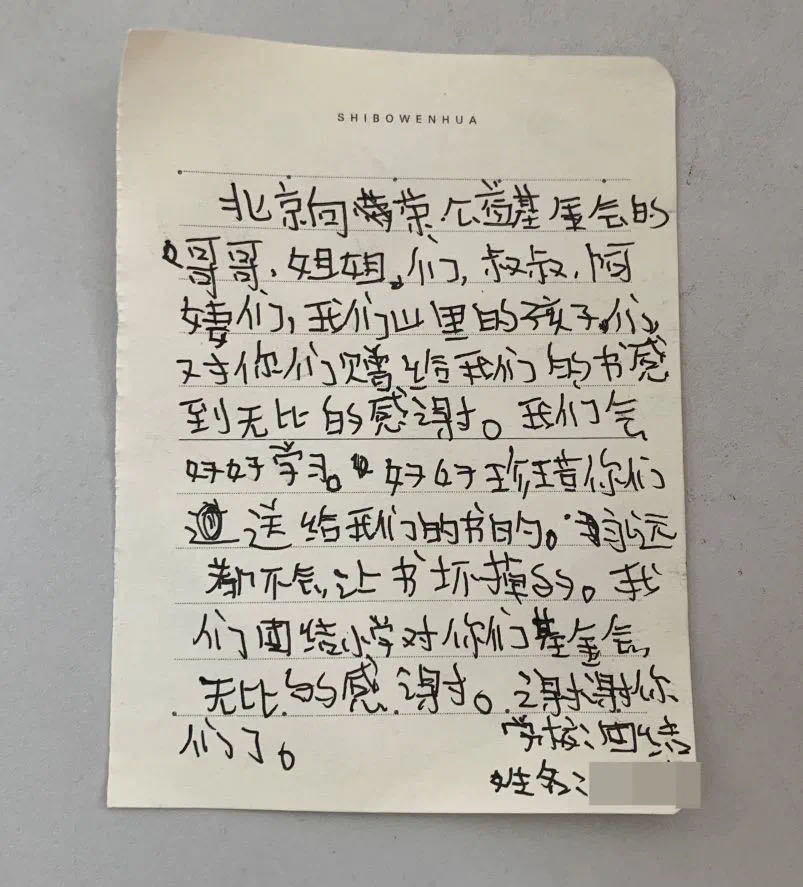 SHIBOWENHUA
北京向荣公益基金会的
哥哥、姐姐们，叔叔、阿
姨们，我们山里的孩子们，
对你们赠给我们的书感
到无比的感谢。我们会
好好学习。好好珍惜你们
送给我们的书的。永远
都不会让书坏掉的。我
们团结小学对你们基金会
无比的感谢。谢谢你
们了。
学校：团结
姓名：